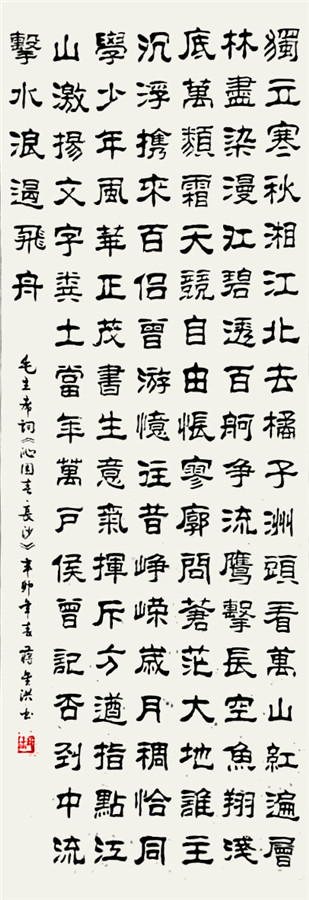 獨立寒秋湘江北去橘子洲頭看萬山紅遍層
林盡染漫江碧透百舸争流鷹擊長空魚翔淺
底萬類霜天競自由悵寥廓問蒼茫大地誰主
沉浮攜來百侣曾游憶往昔崢嶸歲月稠恰同
學少年風華正茂書生意氣揮斥方遒指點江
山激揚文字糞土當年萬户侯曾記否到中流
擊水浪遏飛舟
毛主席词《沁园春·長沙》辛卯年春 蒋洪书